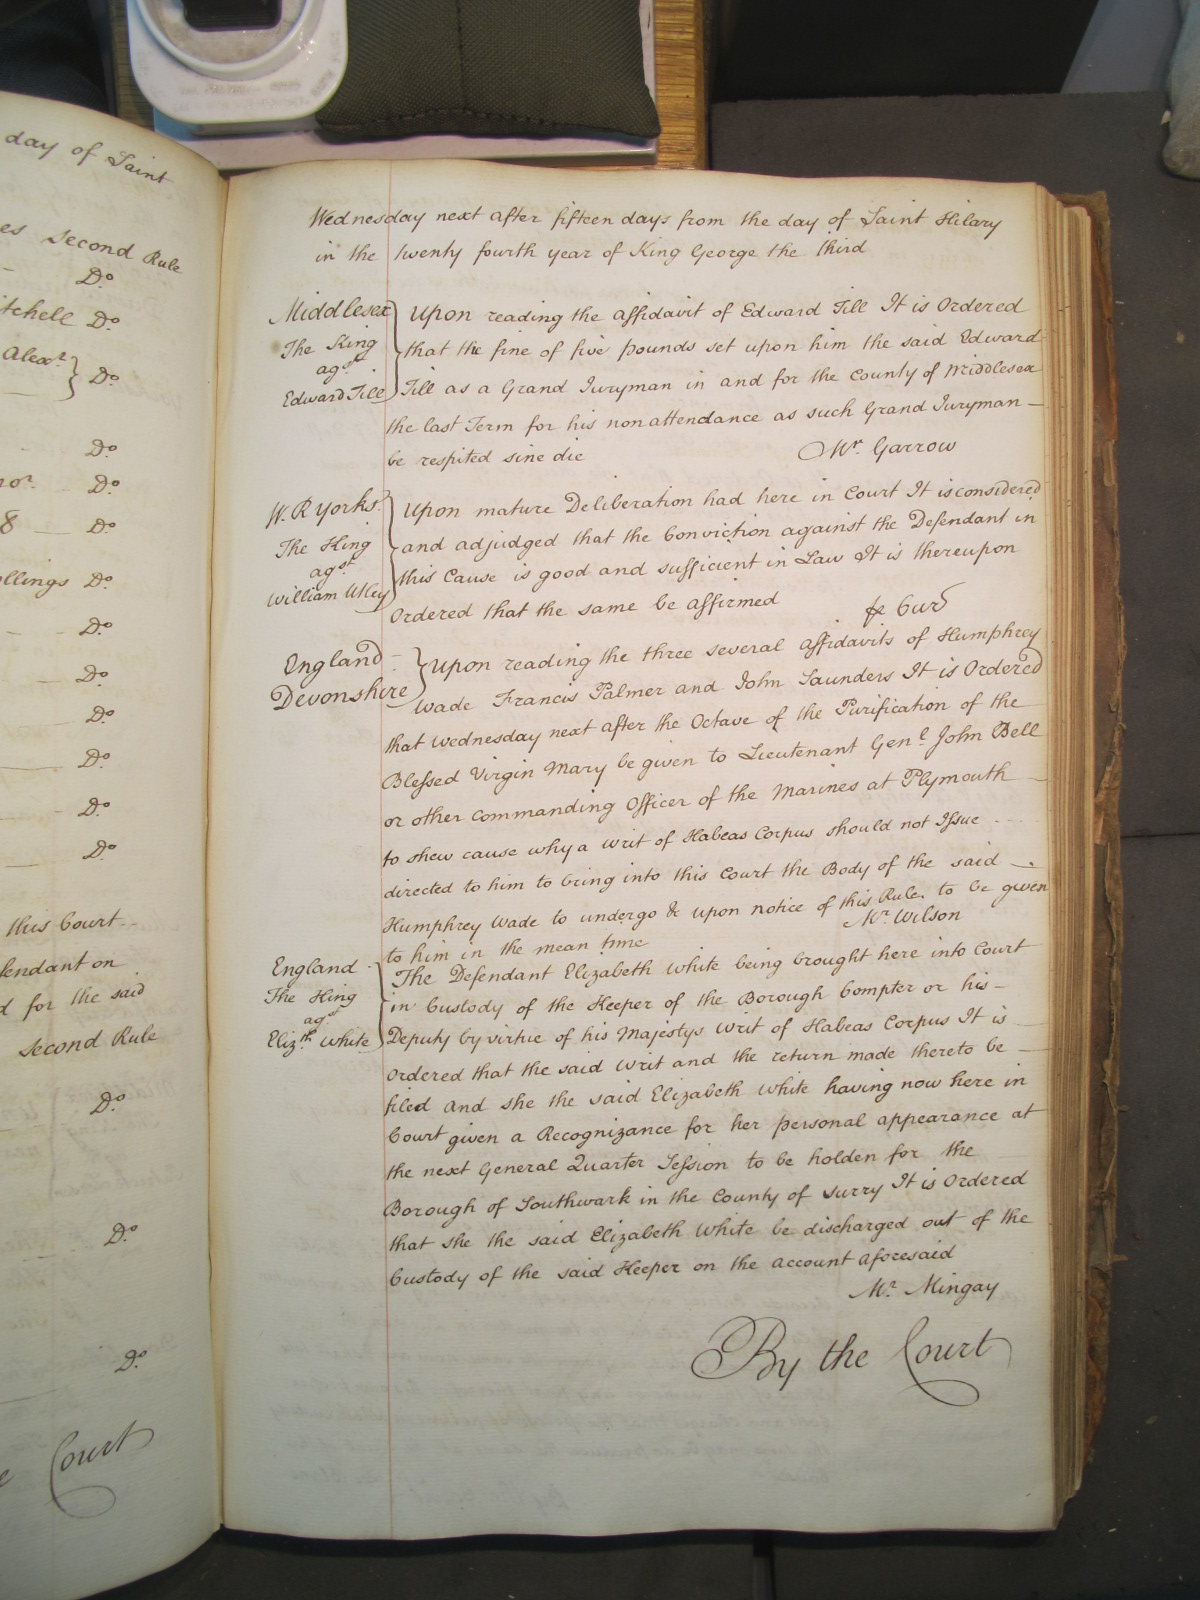 day of Saint
es second Rule
Do
itchell Do
Alexr } Do
Do
nor Do
8 Do
ollings Do
Do
Do
Do
Do
Do
Do
this Court
fendant on
d for the said
second Rule
Do
Do
Do
Court
Wednesday next after fifteen days from the day of Saint Hilary
in the twenty fourth year of King George the third
Middlesex
The King
agst
Edward Till
Upon reading the affidavit of Edward Till It is Ordered
that the fine of five pounds set upon him the said Edward
Till as a Grand Juryman in and for the County of Middlesex
the last Term for his nonattendance as such Grand Juryman
be respited sine die
Mr. Garrow
W. R Yorks.
The King
agst
William Utley
Upon mature Deliberation had here in Court It is considered
and adjudged that the Conviction against the Defendant in
this Cause is good and sufficient in Law It is thereupon
Ordered that the same be affirmed
Cur
England
Devonshire
Upon reading the three several affidavits of Humphrey
Wade Francis Palmer and John Saunders It is Ordered
that Wednesday next after the Octave of the Purification of the
Blessed Virgin Mary be given to Lieutenant Genl John Bell
or other commanding Officer of the Marines at Plymouth
to shew cause why a writ of Habeas Corpus should not Issue
directed to him to bring into this Court the Body of the said
Humphrey Wade to undergo &c upon notice of this Rule to be given
to him in the mean time
Mr. Wilson
England
The King
agst
Elizth White
The Defendant Elizabeth White being brought here into Court
in Custody of the Keeper of the Borough Compter or his
Deputy by virtue of his Majestys Writ of Habeas Corpus It is
Ordered that the said writ and the return made thereto be
filed and she the said Elizabeth White having now here in
Court given a Recognizance for her personal appearance at
the next General Quarter Session to be holden for the
Borough of Southwark in the County of Surry It is Ordered
that she the said Elizabeth White be discharged out of the
Custody of the said Keeper on the account aforesaid
Mr. Mingay
By the Court